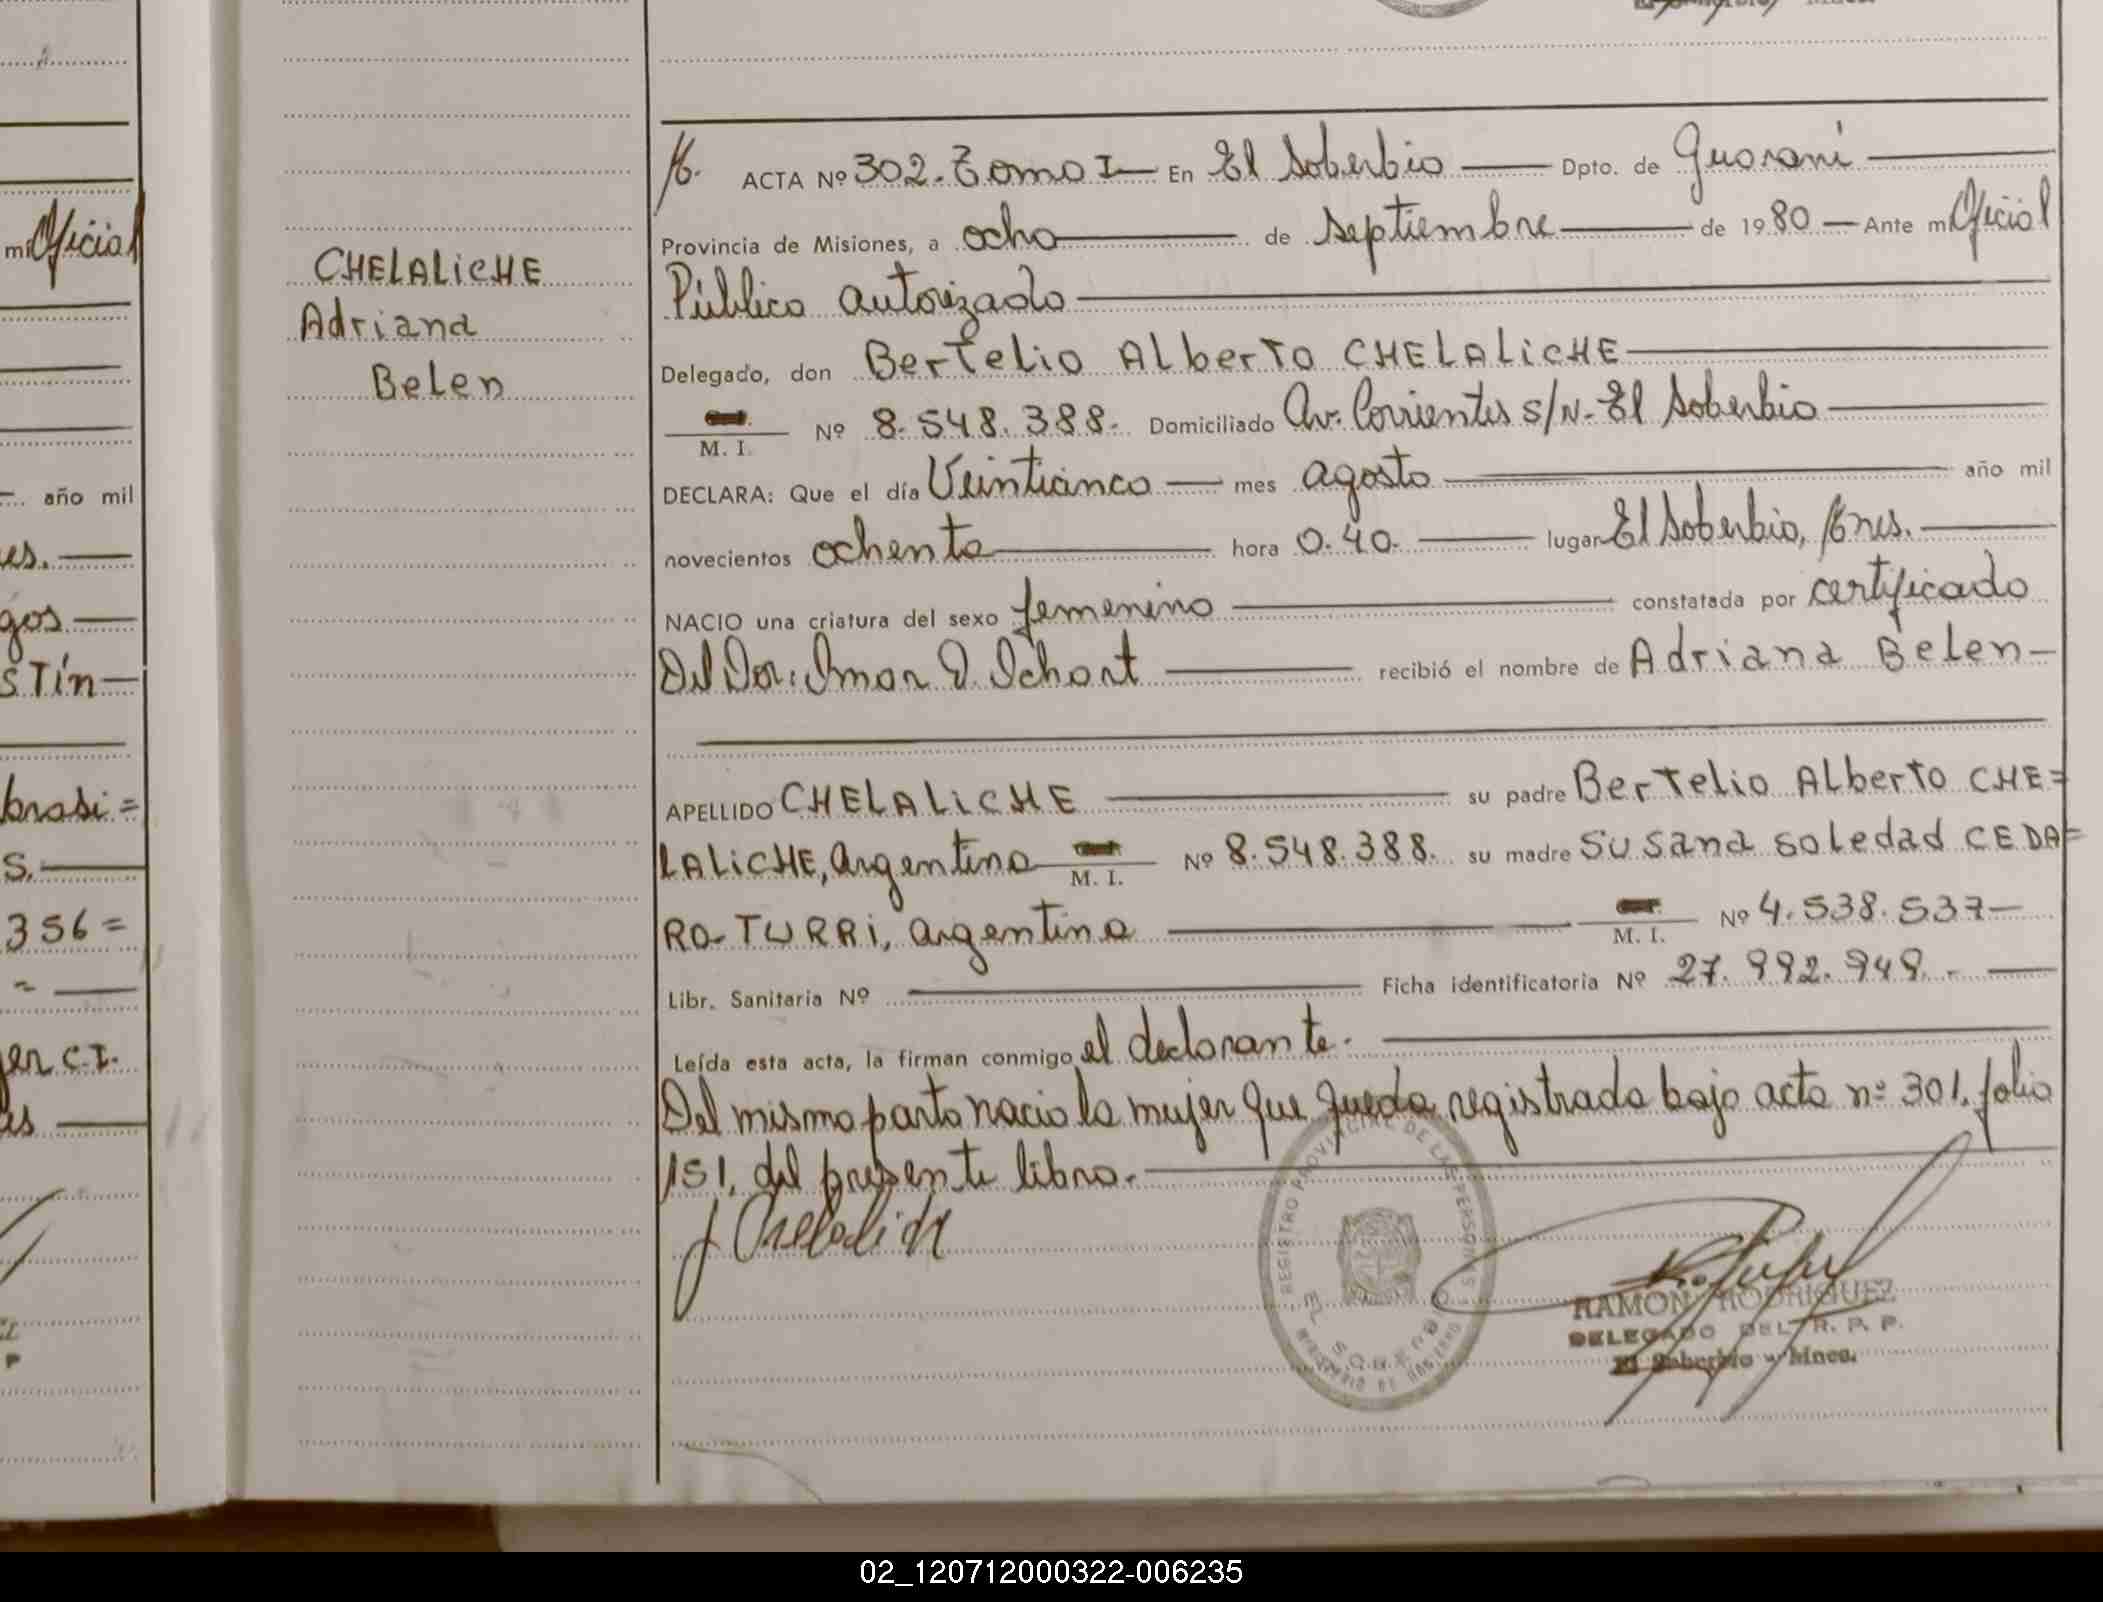 ACTA Nº 302. Tomo I — En El Soberbio — Dpto. de Guaraní —
Provincia de Misiones, a ocho — de septiembre — de 1980 — Ante mí Oficial
Público autorizado —
CHELALICHE
Adriana
Belen
Delegado, don Bertelio Alberto CHELALICHE —
M. I. Nº 8.548.388. Domiciliado Av. Corrientes s/N- El Soberbio —
DECLARA: Que el día Veinticinco — mes agosto — año mil
novecientos ochenta — hora 0.40. — lugar El Soberbio, Mnes. —
NACIO una criatura del sexo femenino — constatada por certificado
Del Dor: Omar D. Ichart — recibió el nombre de Adriana Belen —
APELLIDO CHELALICHE — su padre Bertelio Alberto CHE=
LALICHE, argentino M. I. Nº 8.548.388. su madre Susana Soledad CEDA=
RO-TURRI, argentina — M. I. Nº 4.538.537—
Libr. Sanitaria Nº — Ficha identificatoria Nº 27.992.949.- —
Leída esta acta, la firman conmigo el declarante. —
Del mismo parto nacio la mujer que queda registrada bajo acta nº 301. folio
151, del presente libro. —
REGISTRO PROVINCIAL DE LAS PERSONAS
EL SOBERBIO
MINISTERIO DE GOBIERNO
RAMON RODRIGUEZ
DELEGADO DEL R. P. P.
El Soberbio - Mnes.
mí Oficial
año mil
es. —
gos —
sTín —
brasi =
S. —
356 =
er C.I.
as —
02_120712000322-006235